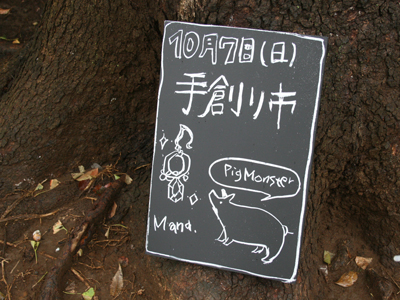 10月7日(日)
手創り市
Pig Monster
Mana.